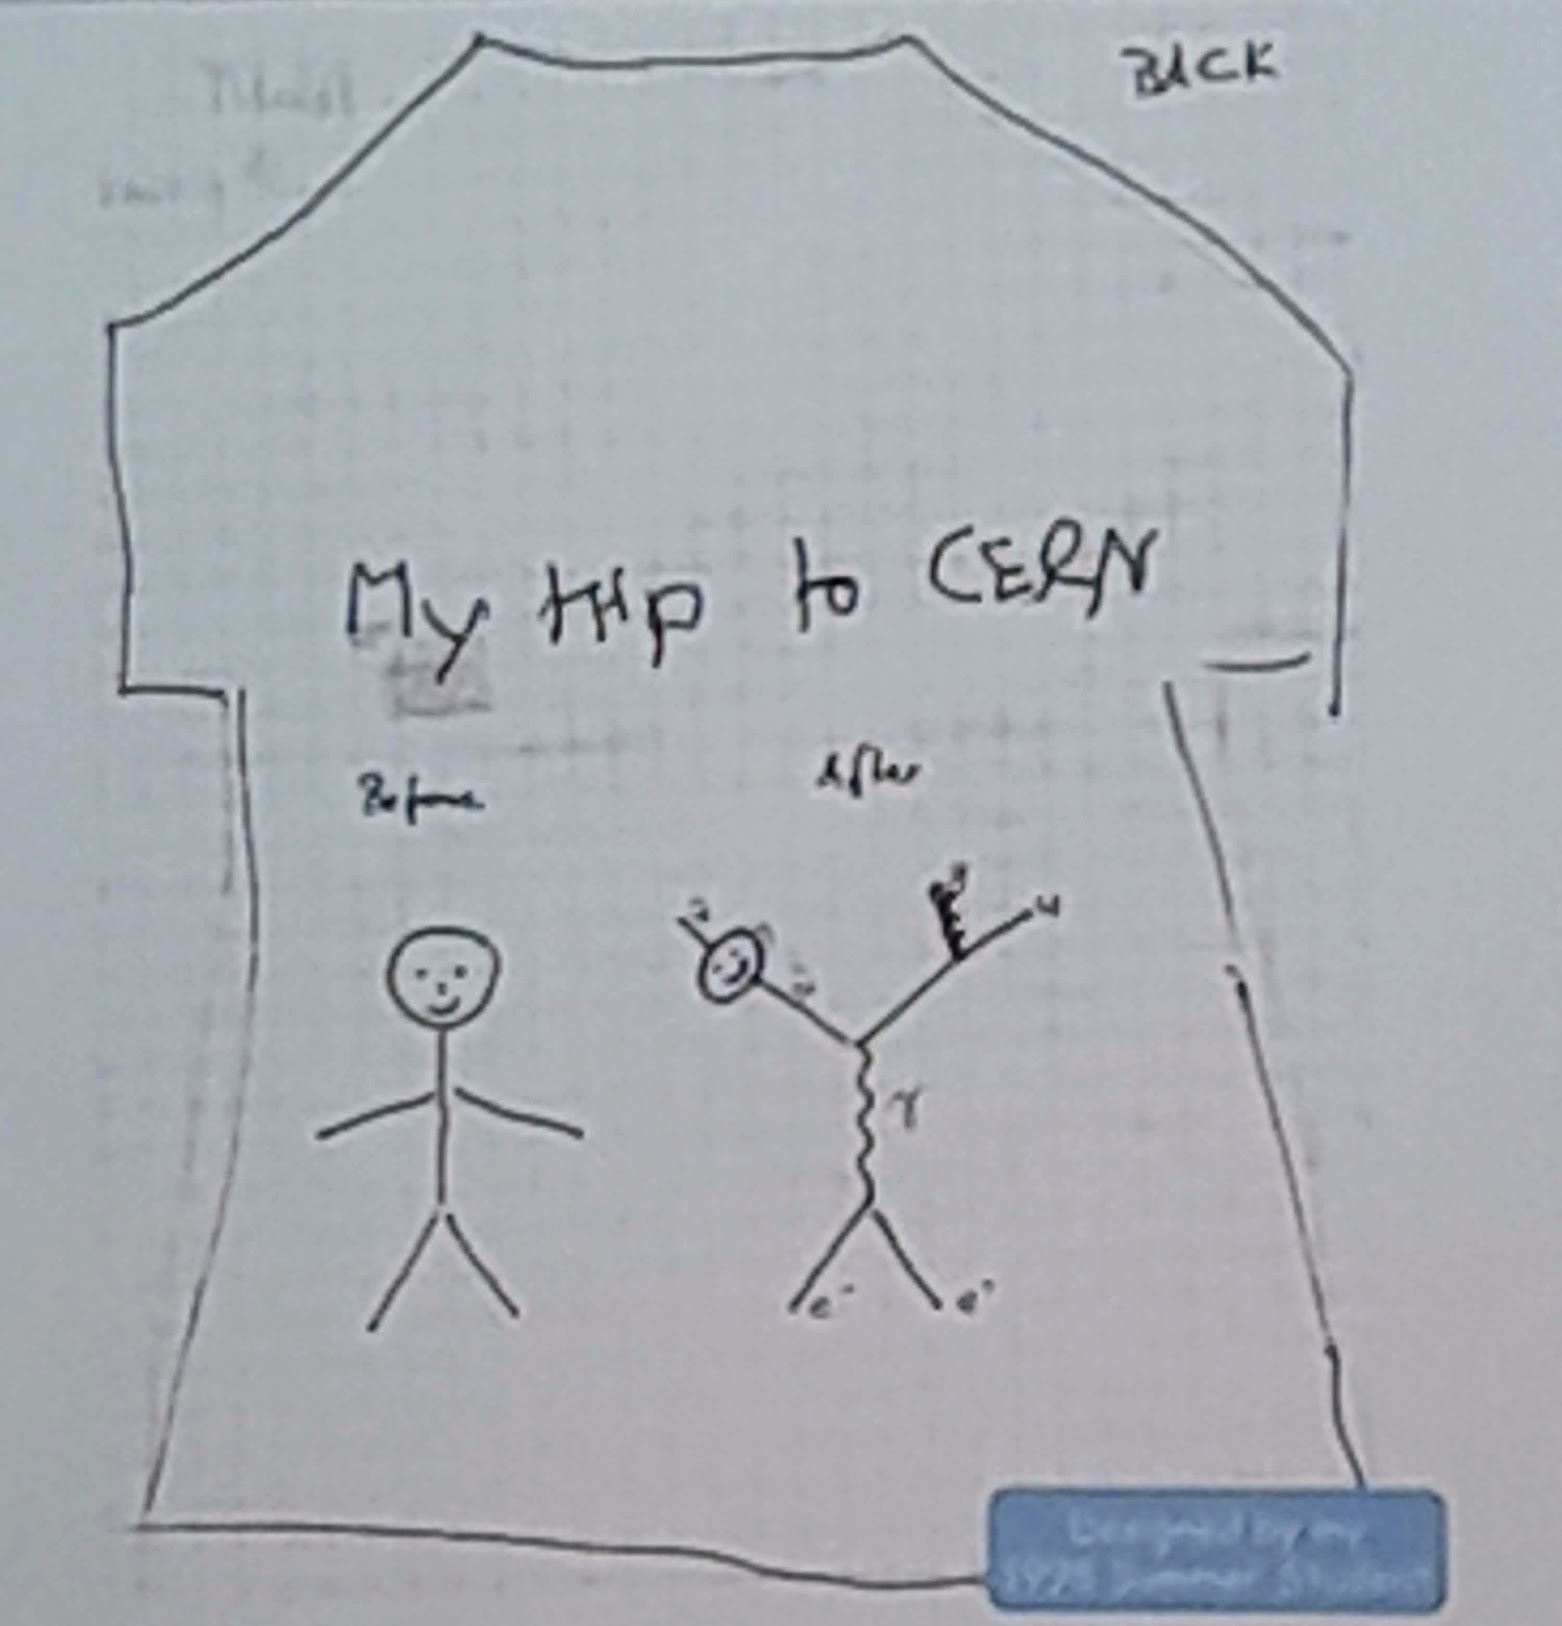 BACK
My trip to CERN
Before After
g
u
γ
e⁻ e⁺
Designed by my
1995 Summer Student